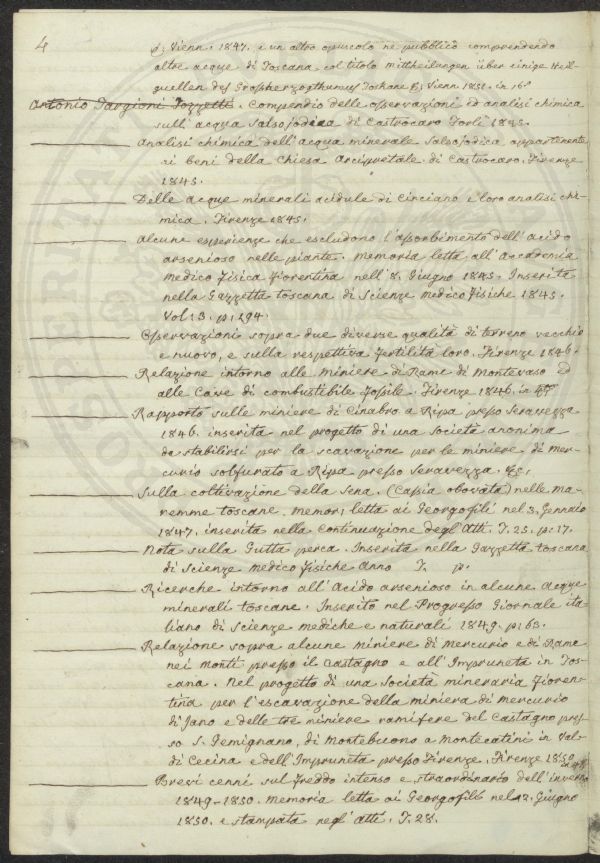 4
di Vienn. 1847. e un altro opuscolo ne pubblicò comprendendo
altre acque di Toscana col titolo mittheilungen über einige Heil-
quellen des Grossherzogthumus Toskana Vienn. 1851. in 16°
Antonio Targioni Tozzetti. Compendio delle osservazioni ed analisi chimica
sull' acqua salsojodica di Castrocaro Forlì 1845.
Analisi chimica dell' acqua minerale salsojodica appartenente
ai beni della Chiesa Arcipretale di Castrocaro. Firenze
1845.
Delle acque minerali acidule di Cinciano e loro analisi chi-
mica. Firenze 1845.
Alcune esperienze che escludono l'assorbimento dell' acido
arsenioso nelle piante. memoria letta all' Accademia
medico fisica fiorentina nell' 8. Giugno 1845. Inserita
nella Gazzetta toscana di Scienze medico fisiche 1845.
Vol. 3. p. 294.
Osservazioni sopra due diverse qualità di terreno vecchio
e nuovo, e sulla respettiva fertilità loro. Firenze 1846.
Relazione intorno alle miniere di Rame di Montevaso ed
alle Cave di combustibile fossile. Firenze 1846. in
Rapporto sulle miniere di Cinabro a Ripa presso Seravezza
1846. inserita nel progetto di una Società anonima
da stabilirsi per la scavazione per le miniere di mer-
curio solfurato a Ripa presso Seravezza. &c.
Sulla coltivazione della Sena. (Cassia obovata) nelle ma-
remme toscane. memor. letta ai Georgofili nel 3. Gennaio
1847. inserita nella Continuazione degli Atti. T. 25. p. 17.
Nota sulla Gutta perca. Inserita nella Gazzetta toscana
di Scienze medico fisiche anno T. p.
Ricerche intorno all' Acido arsenioso in alcune Acque
minerali toscane. Inserito nel Progresso Giornale ita-
liano di Scienze mediche e naturali 1849. p. 63.
Relazione sopra alcune miniere di mercurio e di Rame
nei monti presso il Castagno e all' Impruneta in Tos-
cana. Nel progetto di una Società mineraria fioren-
tina per l'escavazione della miniera di mercurio
di Jano e delle tre miniere ramifere del Castagno pres-
so S. Gemignano, di Montebuono a Montecatini in Val-
di Cecina e dell' Impruneta presso Firenze. Firenze 1850
Brevi cenni sul freddo intenso e straordinario dell' inverno
1849-1850. Memoria letta ai Georgofili nel 2. Giugno
1850. e stampata negl' atti. T. 28.